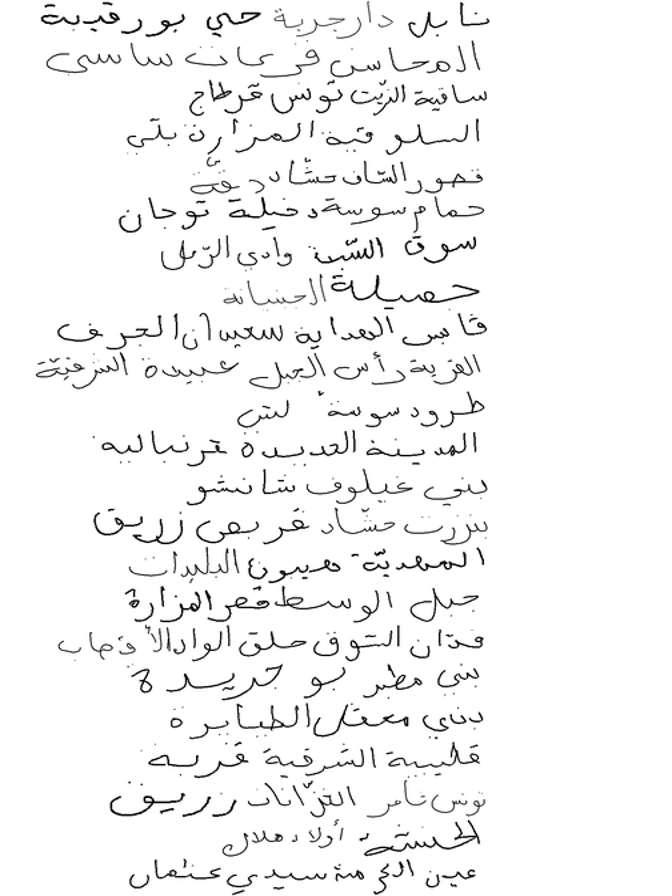 نابل دار جربة حي بورقيبة
المحاسن فرعات ساسي
ساقية الزيت تونس قرطاج
السلوقية المزارة بلّي
قصور السّاف حشّاد دقّة
حمام سوسة دخيلة توجان
سوق السّبت وادي الرّمل
حصيلة الحسانة
قابس الهداية سعيدان الجرف
القرية رأس الجبل عبيدة الشرقيّة
طرود سوسة
المدينة الجديدة قرنبالية
بني غيلوف شانشو
بنزرت حشّاد قربص زريق
المهديّة البلدات
جبل الوسط قصر المزارة
فدّان السّوق حلق الواد الأقصاب
بني مطير بو جريدة
بني معقل الطبابرة
قليبية الشرقية قربة
تونس عامر الغزّانات زريق
أولاد هلال
عين سيدي عثمان